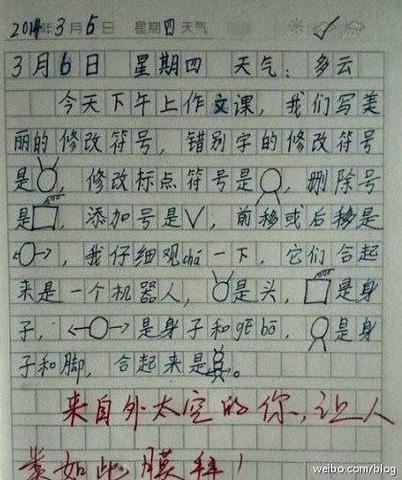 2014年3月6日 星期四 天气
3月6日 星期四 天气：多云
今天下午上作文课，我们写美
丽的修改符号，错别字的修改符号
是，修改标点符号是，删除号
是，添加号是∨，前移或后移是
，我仔细观chá一下，它们合起
来是一个机器人，是头，是身
子，是身子和gē bō，是身
子和脚，合起来是。
来自外太空的你，让人
类如此膜拜！
weibo.com/blog